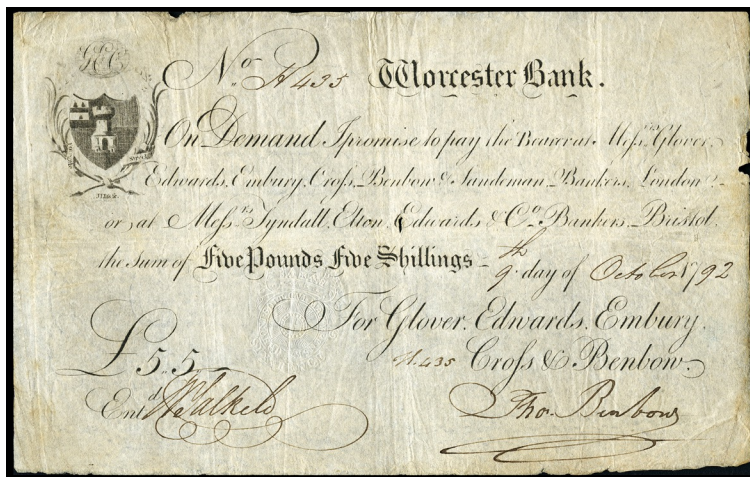 GEC
No. A 435 Worcester Bank.
On Demand I promise to pay the Bearer at Messrs. Glover,
Edwards, Embury, Cross, Benbow & Sandeman, Bankers, London,
or, at Messrs Tyndall, Elton, Edwards & Co. Bankers, Bristol,
the Sum of Five Pounds Five Shillings – 9th day of October 1792
For Glover, Edwards, Embury,
A. 435 Cross & Benbow.
£5..5..
Entd. W Salkeld Tho. Benbow